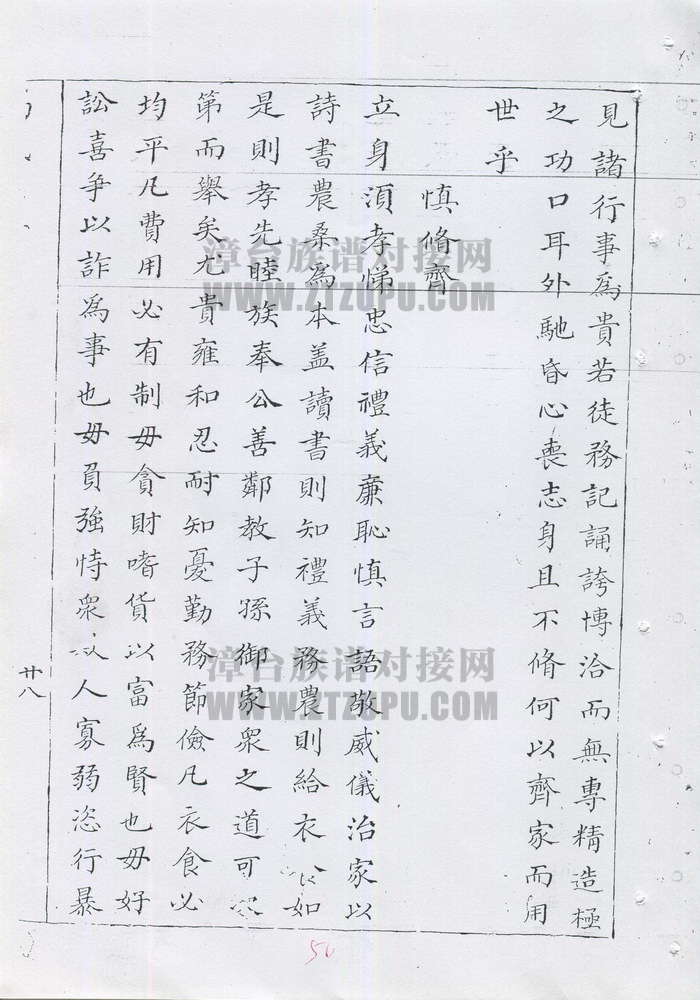 見諸行事為貴若徒務記誦誇博洽而無專精造極
之功口耳外馳昏心喪志身且不脩何以齊家而用
世乎
慎脩齊
立身須孝悌忠信禮義廉恥慎言語敬威儀治家以
詩書農桑為本盖讀書則知禮義務農則給衣如
是則孝先睦族奉公善鄰教子孫御家衆之道可
第而舉矣尤貴雍和忍耐知憂勤務節儉凡衣食必
均平凡費用必有制毋貪財嗜貨以富為賢也毋好
訟喜爭以詐為事也毋負強恃衆人寡弱恣行暴
廿八
50
漳台族谱对接网
WWW.ZTZUPU.COM
漳台族谱对接网
WWW.ZTZUPU.COM